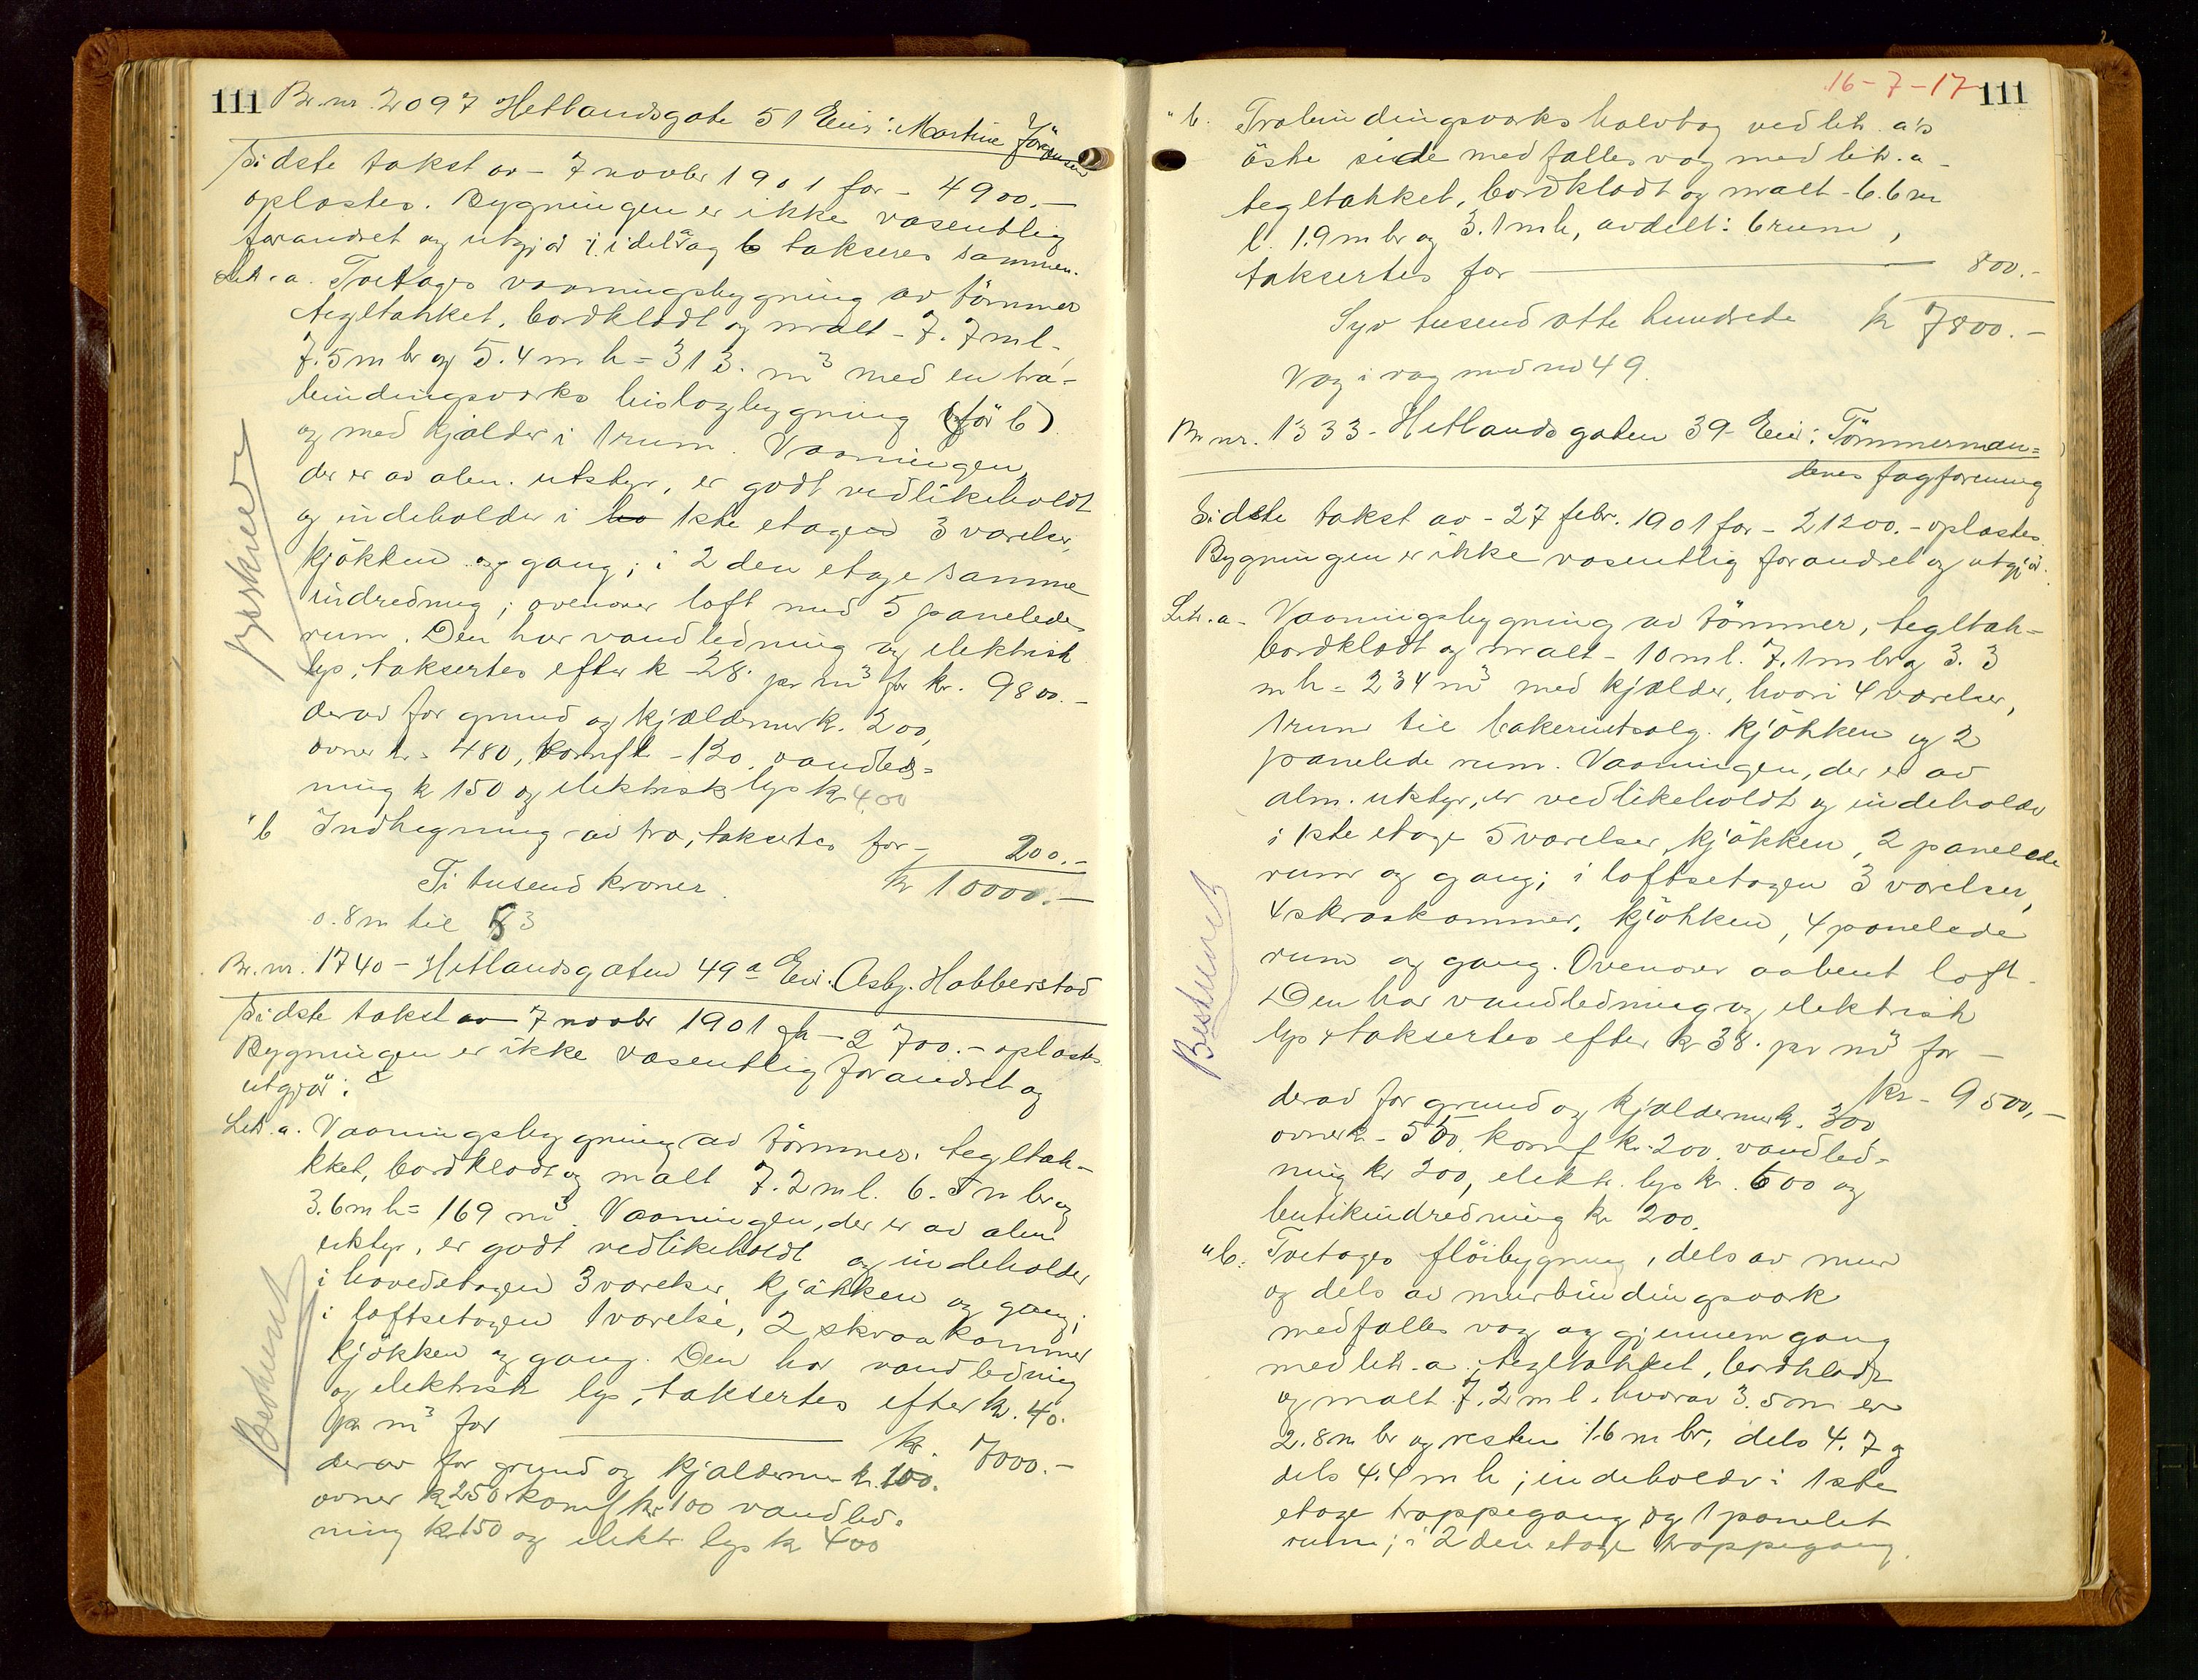 111 Br. nr. 2097 Hetlandsgate 51 Eier: Martine Jörgensen
Sidste takst av - 7 novbr 1901 for - 4900.-
oplæstes. Bygningen er ikke væsentlig
forandret og utgjør; idet a og b takseres sammen.
Litr. a. Toetages vaaningsbygning av tömmer
tegltækket, bordklædt og malt - 7.7 m l.
7.5 m br og 5.4 m h = 313. m³ med en træ-
bindingsverks bislagbygning (för b)
og med kjælder i 1 rum. Vaaningen,
der er av alm. utstyr, er godt vedlikeholdt
og indeholder i 1ste etage 3 værelser,
kjökken og gang; i 2den etage samme
indredning; ovenover loft med 5 panelede
rum. Den har vandledning og elektrisk
lys; taksertes efter k - 28. pr m³ for kr. 9800.-
derav for grund og kjældermur k. 200,
ovner k. 480, komf k - 120, vandled-
ning k 150 og elektrisk lys kr 400
" b Indhegning av træ, taksertes for - 200.-
Ti tusend kroner. kr 10000.-
0.8 m til 53
Beskrevet
Br. nr. 1740 - Hetlandsgaten 49a Eier. Asbj. Hobberstad
Sidste takst av 7 novbr 1901 for - 2700.- oplæstes
Bygningen er ikke væsentlig forandret og
utgjör:
Litr. a. Vaaningsbygning av tömmer, tegltæk-
ket, bordklædt og malt 7.2 m l. 6.5 m br og
3.6 m h = 169 m³. Vaaningen, der er av alm.
utstyr, er godt vedlikeholdt og indeholder
i hovedetagen 3 værelser, kjökken og gang;
i loftsetagen 1 værelse, 2 skraakammer
kjökken og gang. Den har vandledning
og elektrisk lys, taksertes efter kr. 40.
pr m³ for kr. 7000.-
derav for grund og kjældermur k. 100.
ovner k 250 komf kr 100 vandled-
ning k 150 og elektr. lys k 400
Beskrevet
16-7-17 111
" b. Træbindingsverks halvtag ved litr. a's
östre side med fælles væg med litr. a -
tegltækket, bordklædt og malt - 6.6 m
l. 1.9 m br og 3.1 m h, avdelt i 6 rum,
taksertes for 800.-
Syv tusend otte hundrede kr 7800.-
Væg i væg med no 49.
Br nr. 1333 - Hetlandsgaten 39 - Eier: Tömmermæn-
denes fagforening
Sidste takst av - 27 febr. 1901 for - 21200.- oplæstes.
Bygningen er ikke væsentlig forandret og utgjör:
Litr. a - Vaaningsbygning av tömmer, tegltæk-
bordklædt og malt - 10 m l. 7.1 m br og 3.3
m h = 234 m³ med kjælder, hvori 4 værelser,
1 rum til bakeriutsalg, kjökken og 2
panelede rum. Vaaningen, der er av
alm. utstyr, er vedlikeholdt og indeholder
i 1ste etage 5 værelser, kjökken, 2 panelede
rum og gang; i loftsetagen 3 værelser,
4 skraakammer, kjökken, 4 panelede
rum og gang. Ovenover aabent loft.
Den har vandledning og elektrisk
lys; taksertes efter kr 38. pr m³ for -
kr - 9500.-
derav for grund og kjældermur k. 300
ovner k - 500. komf kr 200, vandled-
ning kr 200, elektr. lys kr. 600 og
butikindredning kr 200.
" b. Toetages flöibygning, dels av mur
og dels av murbindingsverk
med fælles væg og gjennemgang
med litr. a. tegltækket, bordklædt
og malt 7.2 m l. hvorav 3.5 m er
2.8 m br og resten 1.6 m br, dels 4.7 og
dels 4.4 m h; indeholder i 1ste
etage trappegang og 1 panelet
rum; i 2den etage trappegang.
Beskrevet